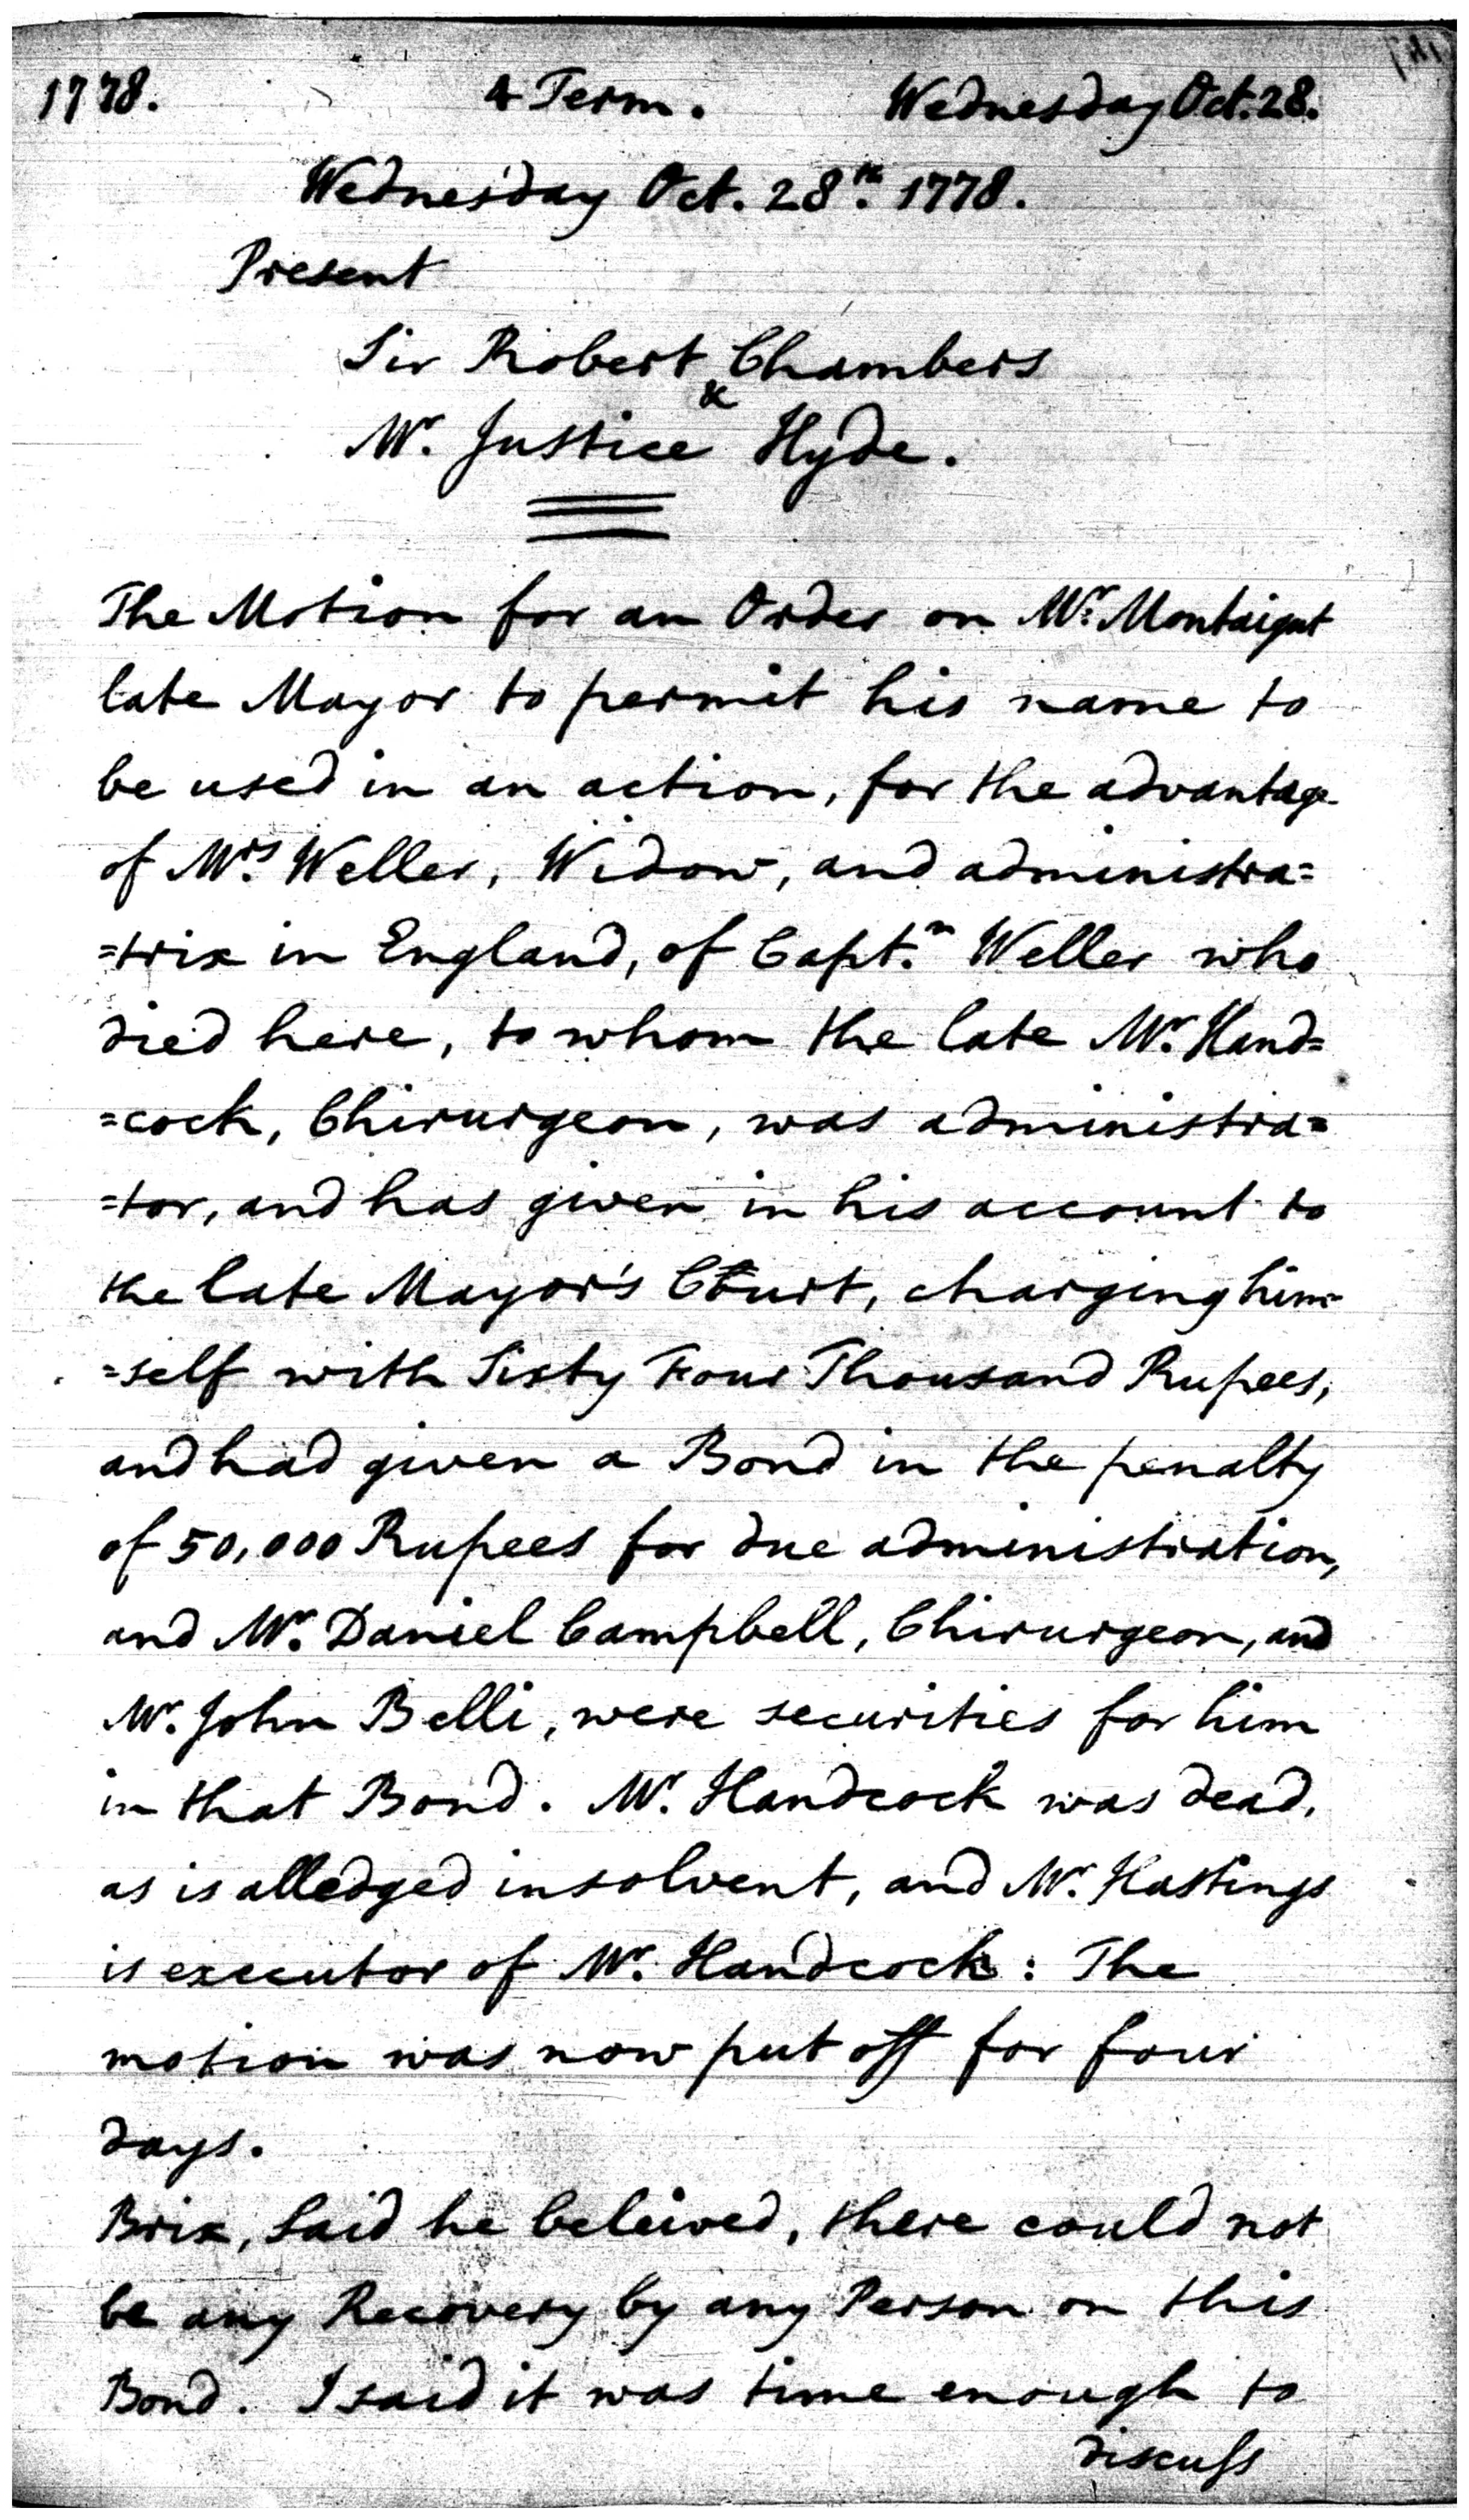 1778. 4 Term. Wednesday Oct. 28.
Wednesday Oct. 28th. 1778.
Present
Sir Robert Chambers
&
Mr. Justice Hyde.
The Motion for an Order on Mr. Montaigut
late Mayor to permit his name to
be used in an action, for the advantage
of Mrs. Weller, Widow, and administra=
=trix in England, of Captn. Weller who
died here, to whom the late Mr. Hand=
=cock, Chirurgeon, was administra=
=tor, and has given in his account to
the late Mayor's Court, charging him=
=self with Sixty Four Thousand Rupees,
and had given a Bond in the penalty
of 50,000 Rupees for due administration,
and Mr. Daniel Campbell, Chirurgeon, and
Mr. John Belli, were securities for him
in that Bond. Mr. Handcock was dead,
as is alledged insolvent, and Mr. Hastings
is executor of Mr. Handcock: The
motion was now put off for four
days.
Brix, Said he beleived, there could not
be any Recovery by any Person on this
Bond. I said it was time enough to
discuſs